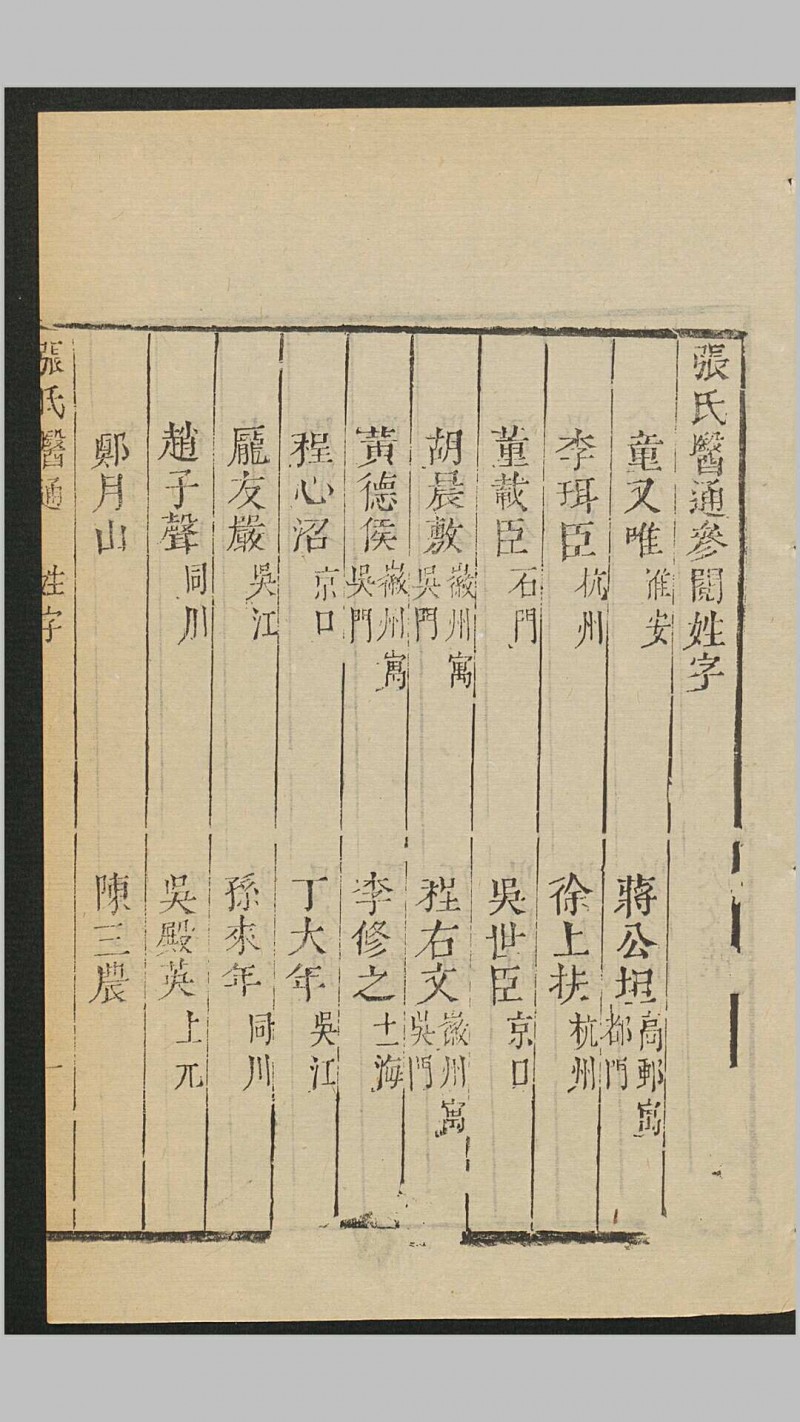 張氏醫通參閱姓字
童又唯 淮安 蔣公坦 高郵寓都門
李珥臣 杭州 徐上扶 杭州
董載臣 石門 吳世臣 京口
胡晨敷 徽州寓吳門 程右文 徽州寓吳門
黃德侯 徽州寓吳門 李修之 上海
程心沼 京口 丁大年 吳江
龐友嚴 吳江 孫來年 同川
趙子聲 同川 吳殿英 上元
鄭月山 陳三農
張氏醫通 姓字 一